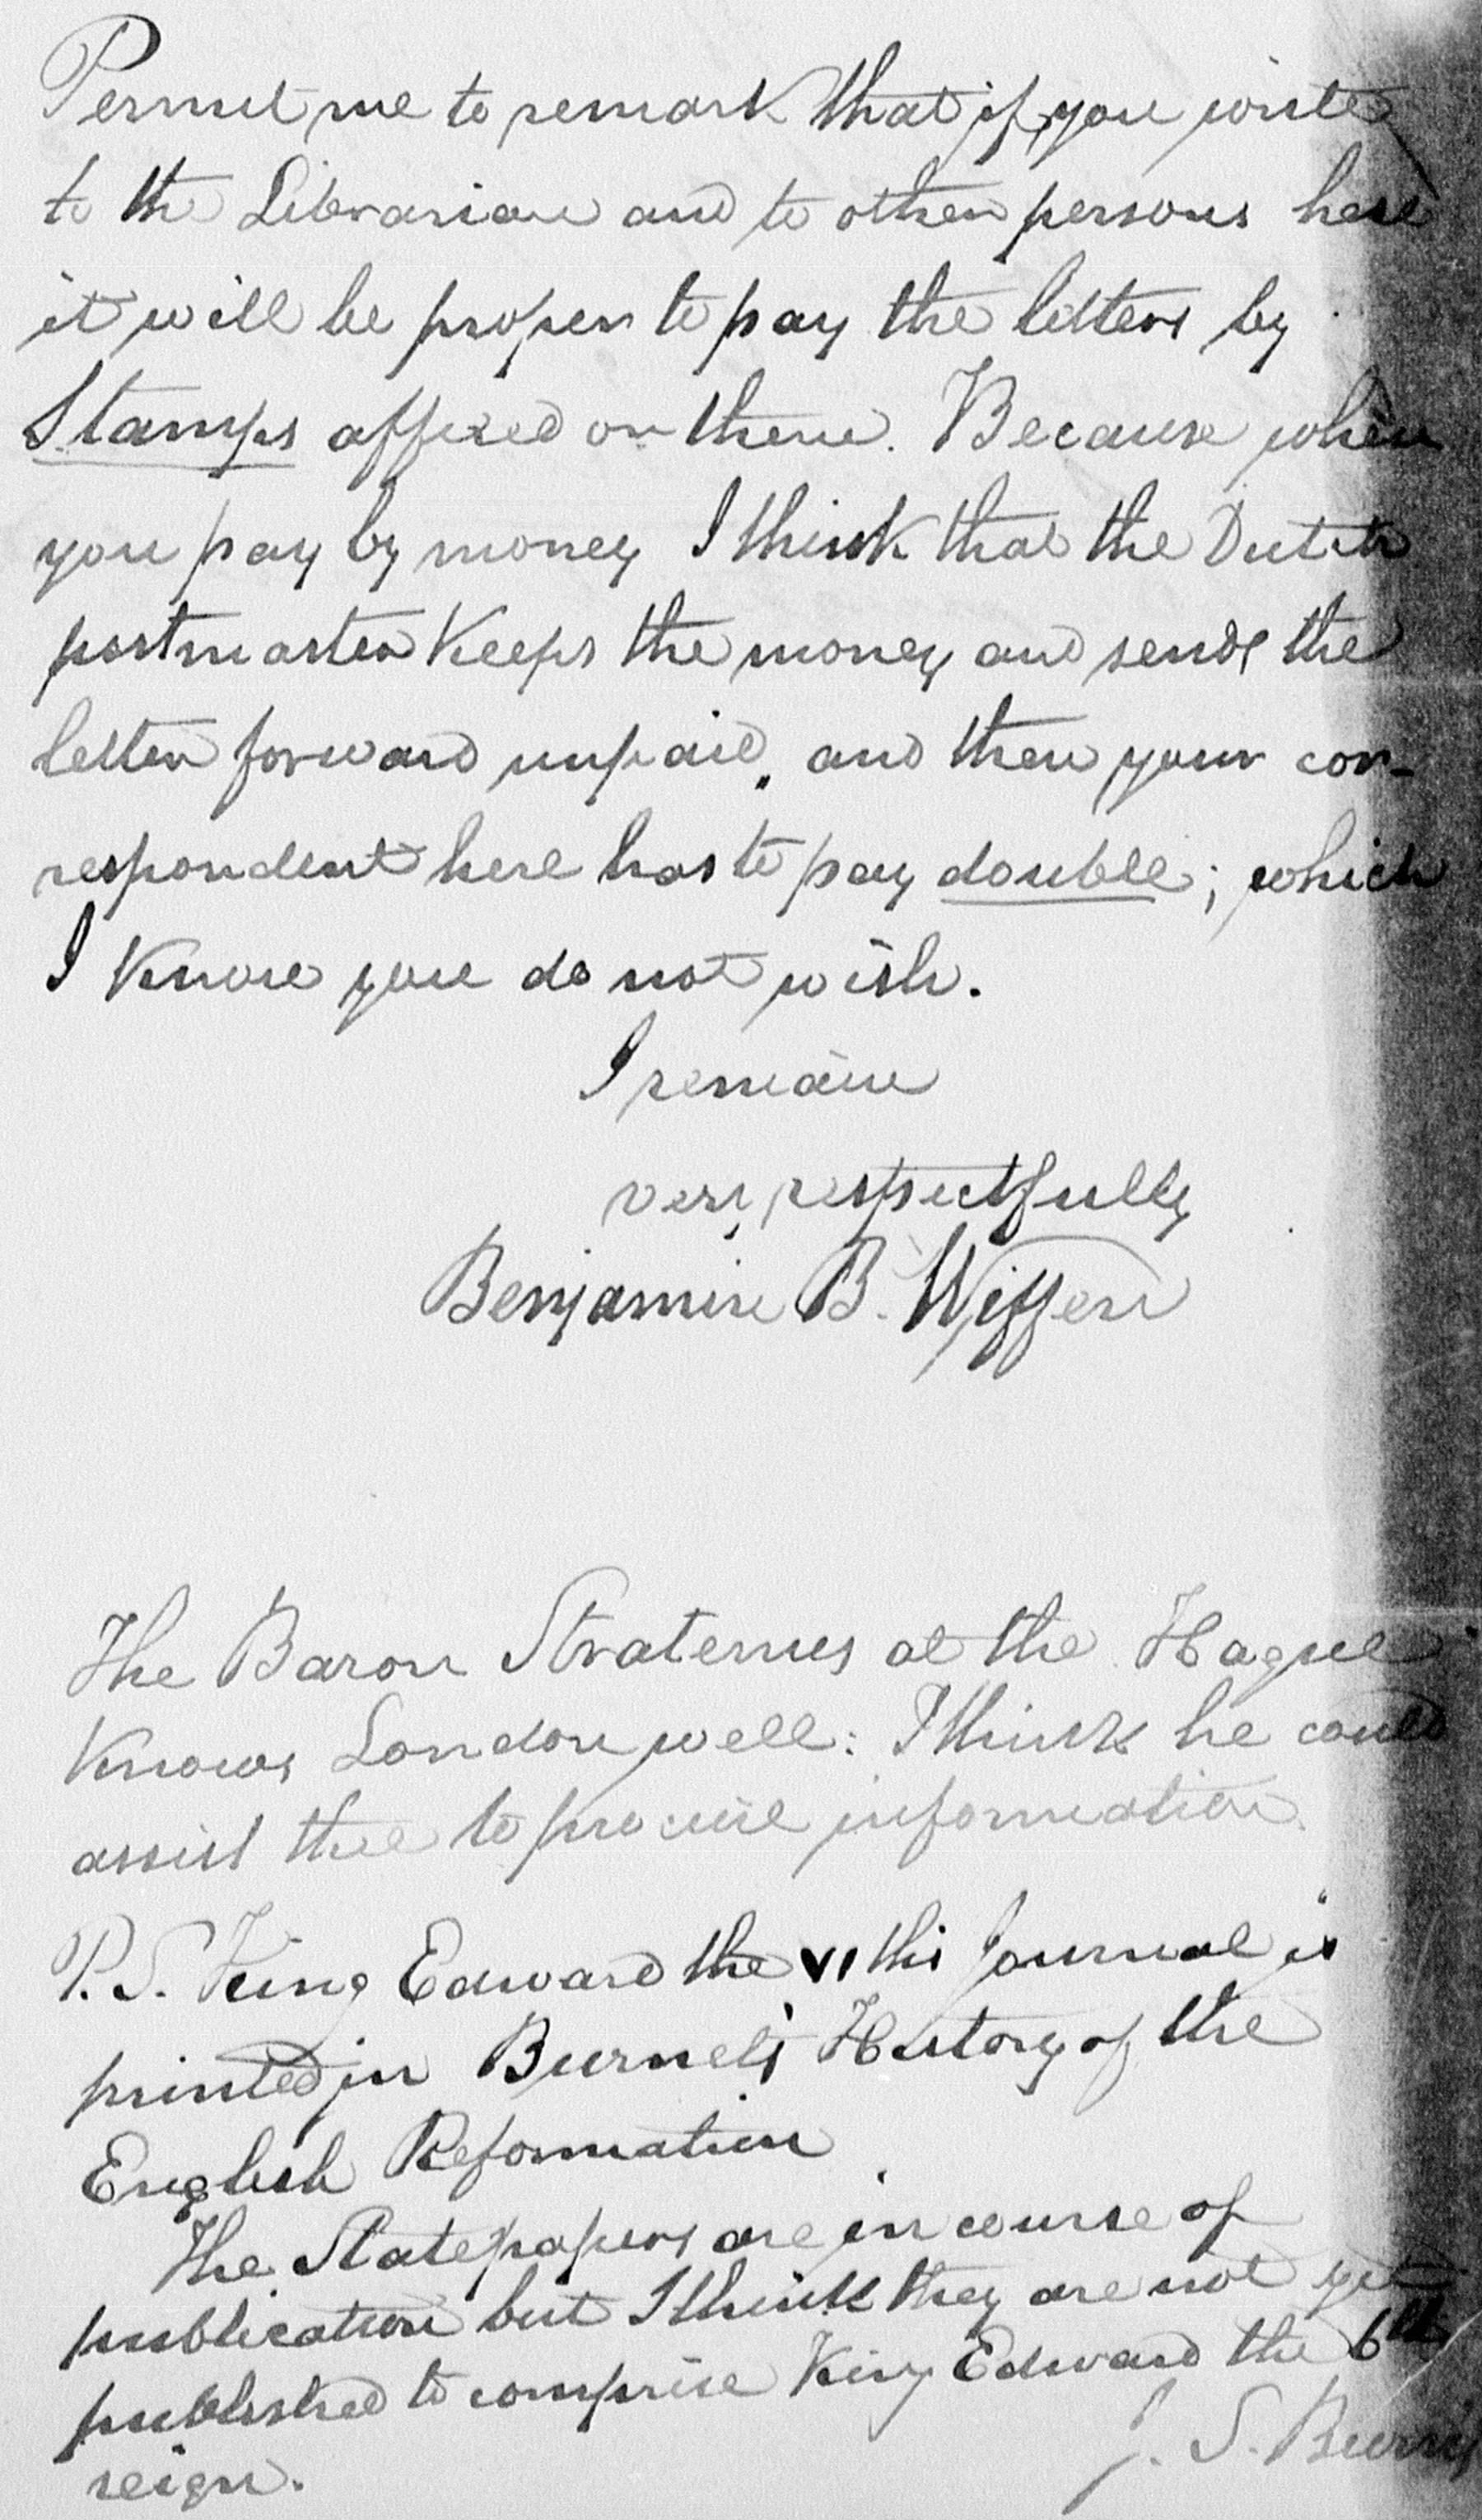 Permit me to remark that if you write
to the Librarian and to other persons here
it will be proper to pay the letters by
Stamps affixed on them. Because when
you pay by money I think that the Dutch
postmaster Keeps the money and sends the
letter forward unpaid, and then your cor-
respondent here has to pay double; which
I Know you do not wish.
I remain
very respectfully
Benjamin B. Wiffen
The Baron Stratenus at the Hague
Knows London well: I think he could
assist thee to procure information
P.S. King Edward the VI this Journal is
printed in Burnet's History of the
English Reformation
The State papers are in course of
publication but I think they are not yet
published to comprise King Edward the 6th
reign.
J. S.